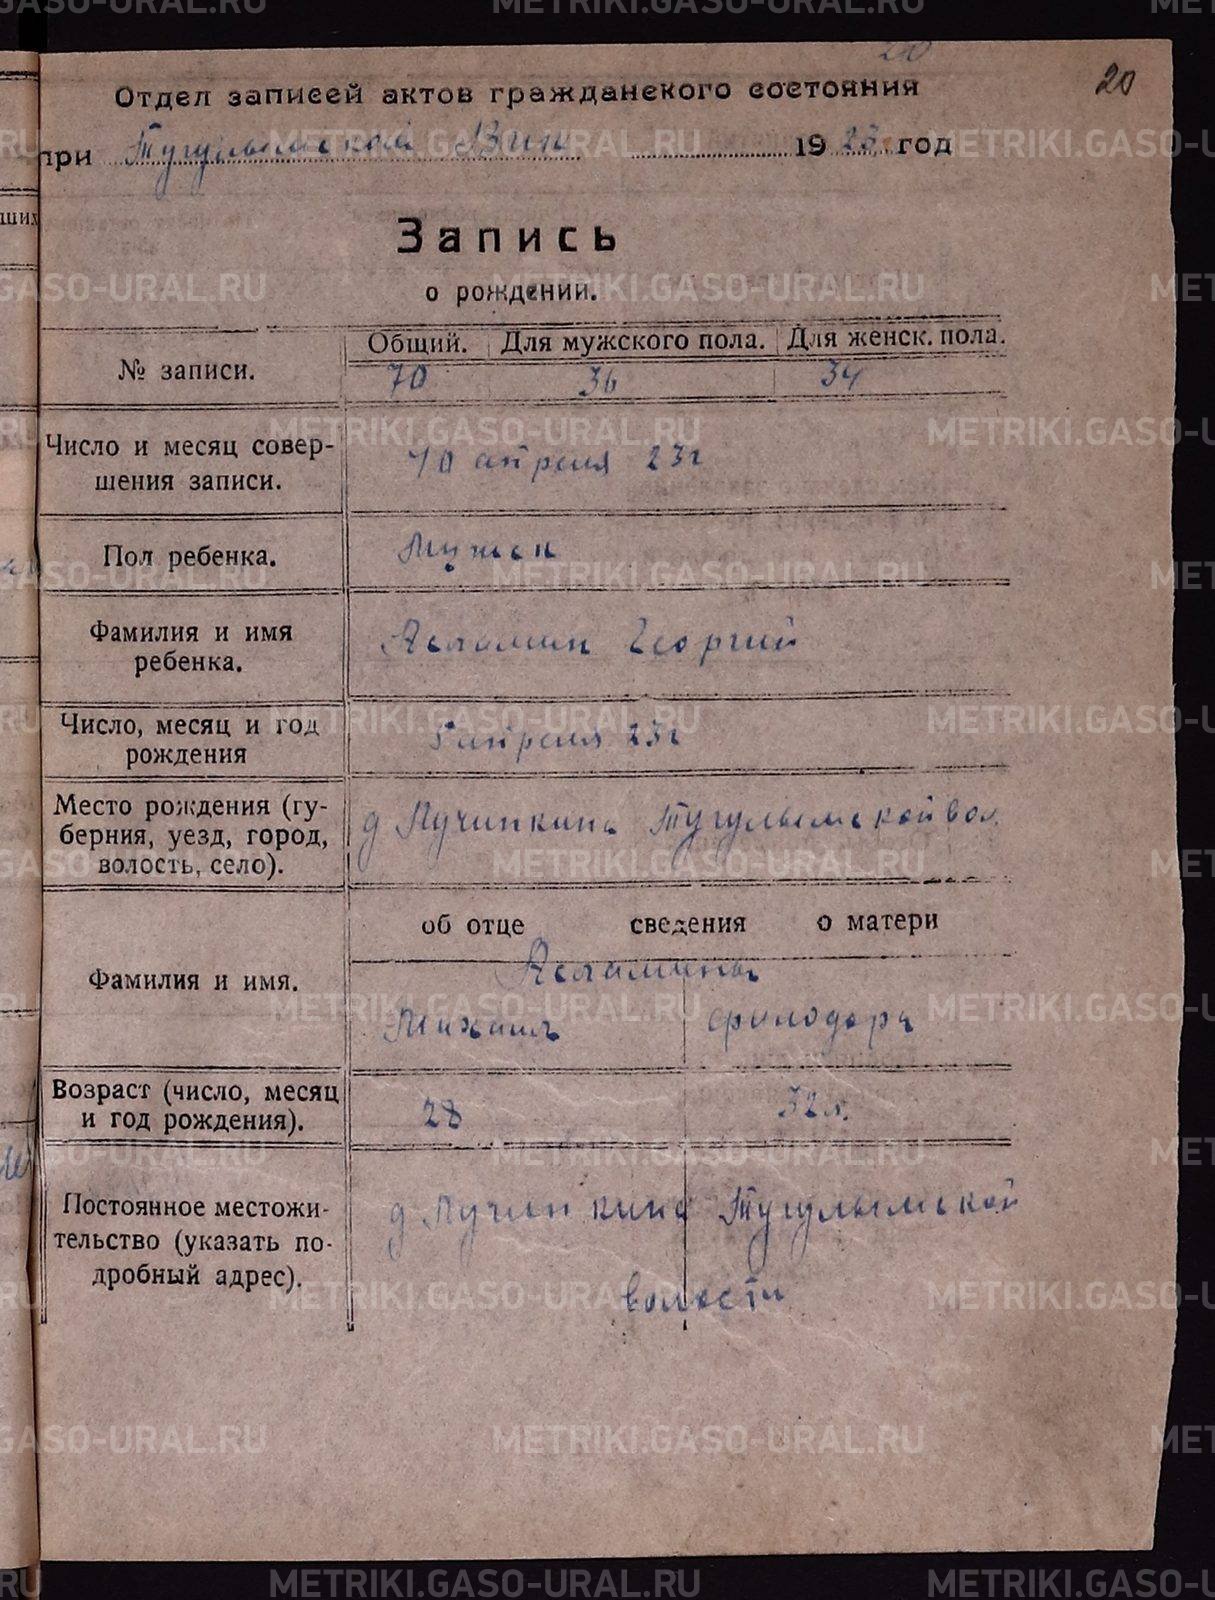 20
Отдел записей актов гражданского состояния
при Тугулымской Вик 1923 год
Запись
о рождении.
№ записи.
Общий. Для мужского пола. Для женск. пола.
70 36 34
Число и месяц совершения записи.
10 апреля 23г
Пол ребенка.
Мужск
Фамилия и имя
ребенка.
Асламин Георгий
Число, месяц и год
рождения
5 апреля 23г
Место рождения (гу-
берния, уезд, город,
волость, село).
д Лучинкина Тугулымской вол.
об отце сведения о матери
Фамилия и имя.
Асламины
Михаил
Возраст (число, месяц
и год рождения).
28 32 л.
Постоянное местожи-
тельство (указать по-
дробный адрес).
д Лучинкина Тугулымской
волости
METRIKI.GASO-URAL.RU